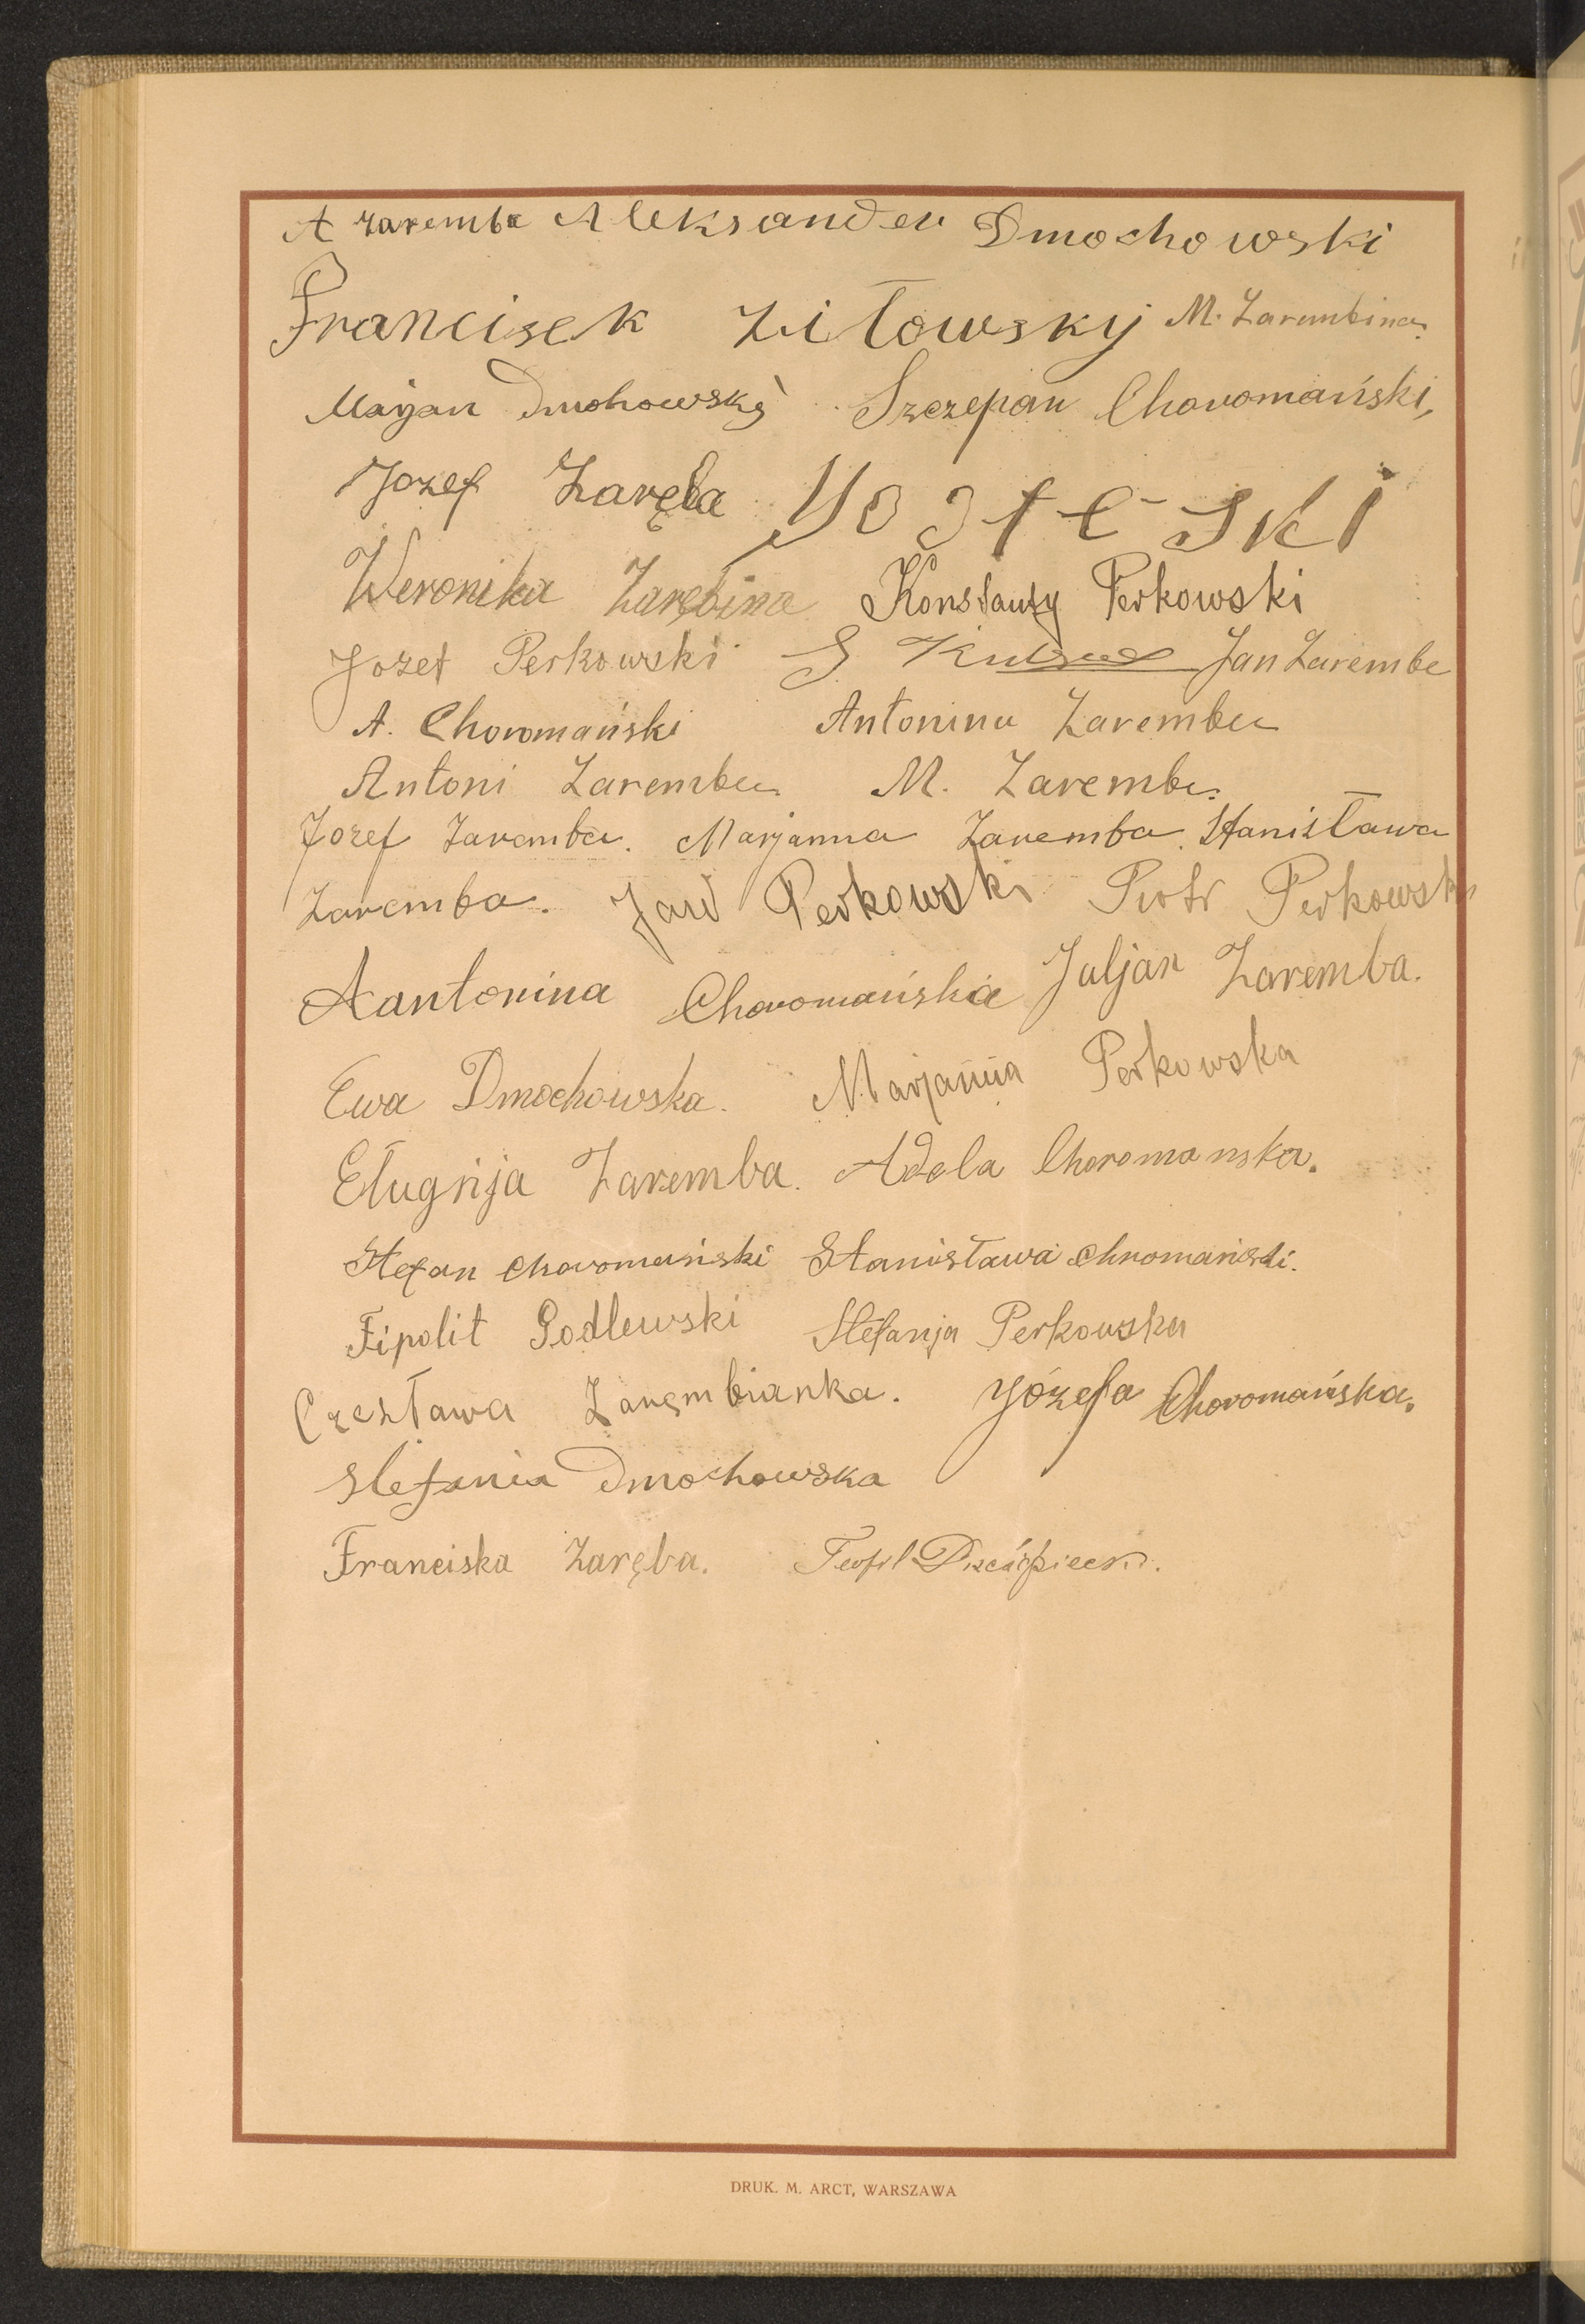 A Zaremba Aleksander Dmochowski
Francisek Zitowsky M. Zarembina.
Maryan Dmohowsky Szczepan Choromański,
Jozef Zaręba
Weronika Zarębina Konstanty Perkowski
Jozef Perkowski S Jan Zaremba
A. Choromański Antonina Zaremba
Antoni Zaremba M. Zaremba.
Jozef Zaremba. Marjanna Zaremba. Stanisława
Zaremba. Jan Perkowski Piotr Perkowski
Aantonina Choromańska Juljan Zaremba.
Ewa Dmochowska. Marjanna Perkowska
Eługnija Zaremba. Adela Choromanska.
Stefan Choromański Stanisława Chromański.
Fipolit Godlewski Stefanja Perkowska
Czesława Zarembianka. Józefa Choromańska.
Stefania Dmochowska
Franciska Zaręba. Teofil
DRUK. M. ARCT, WARSZAWA